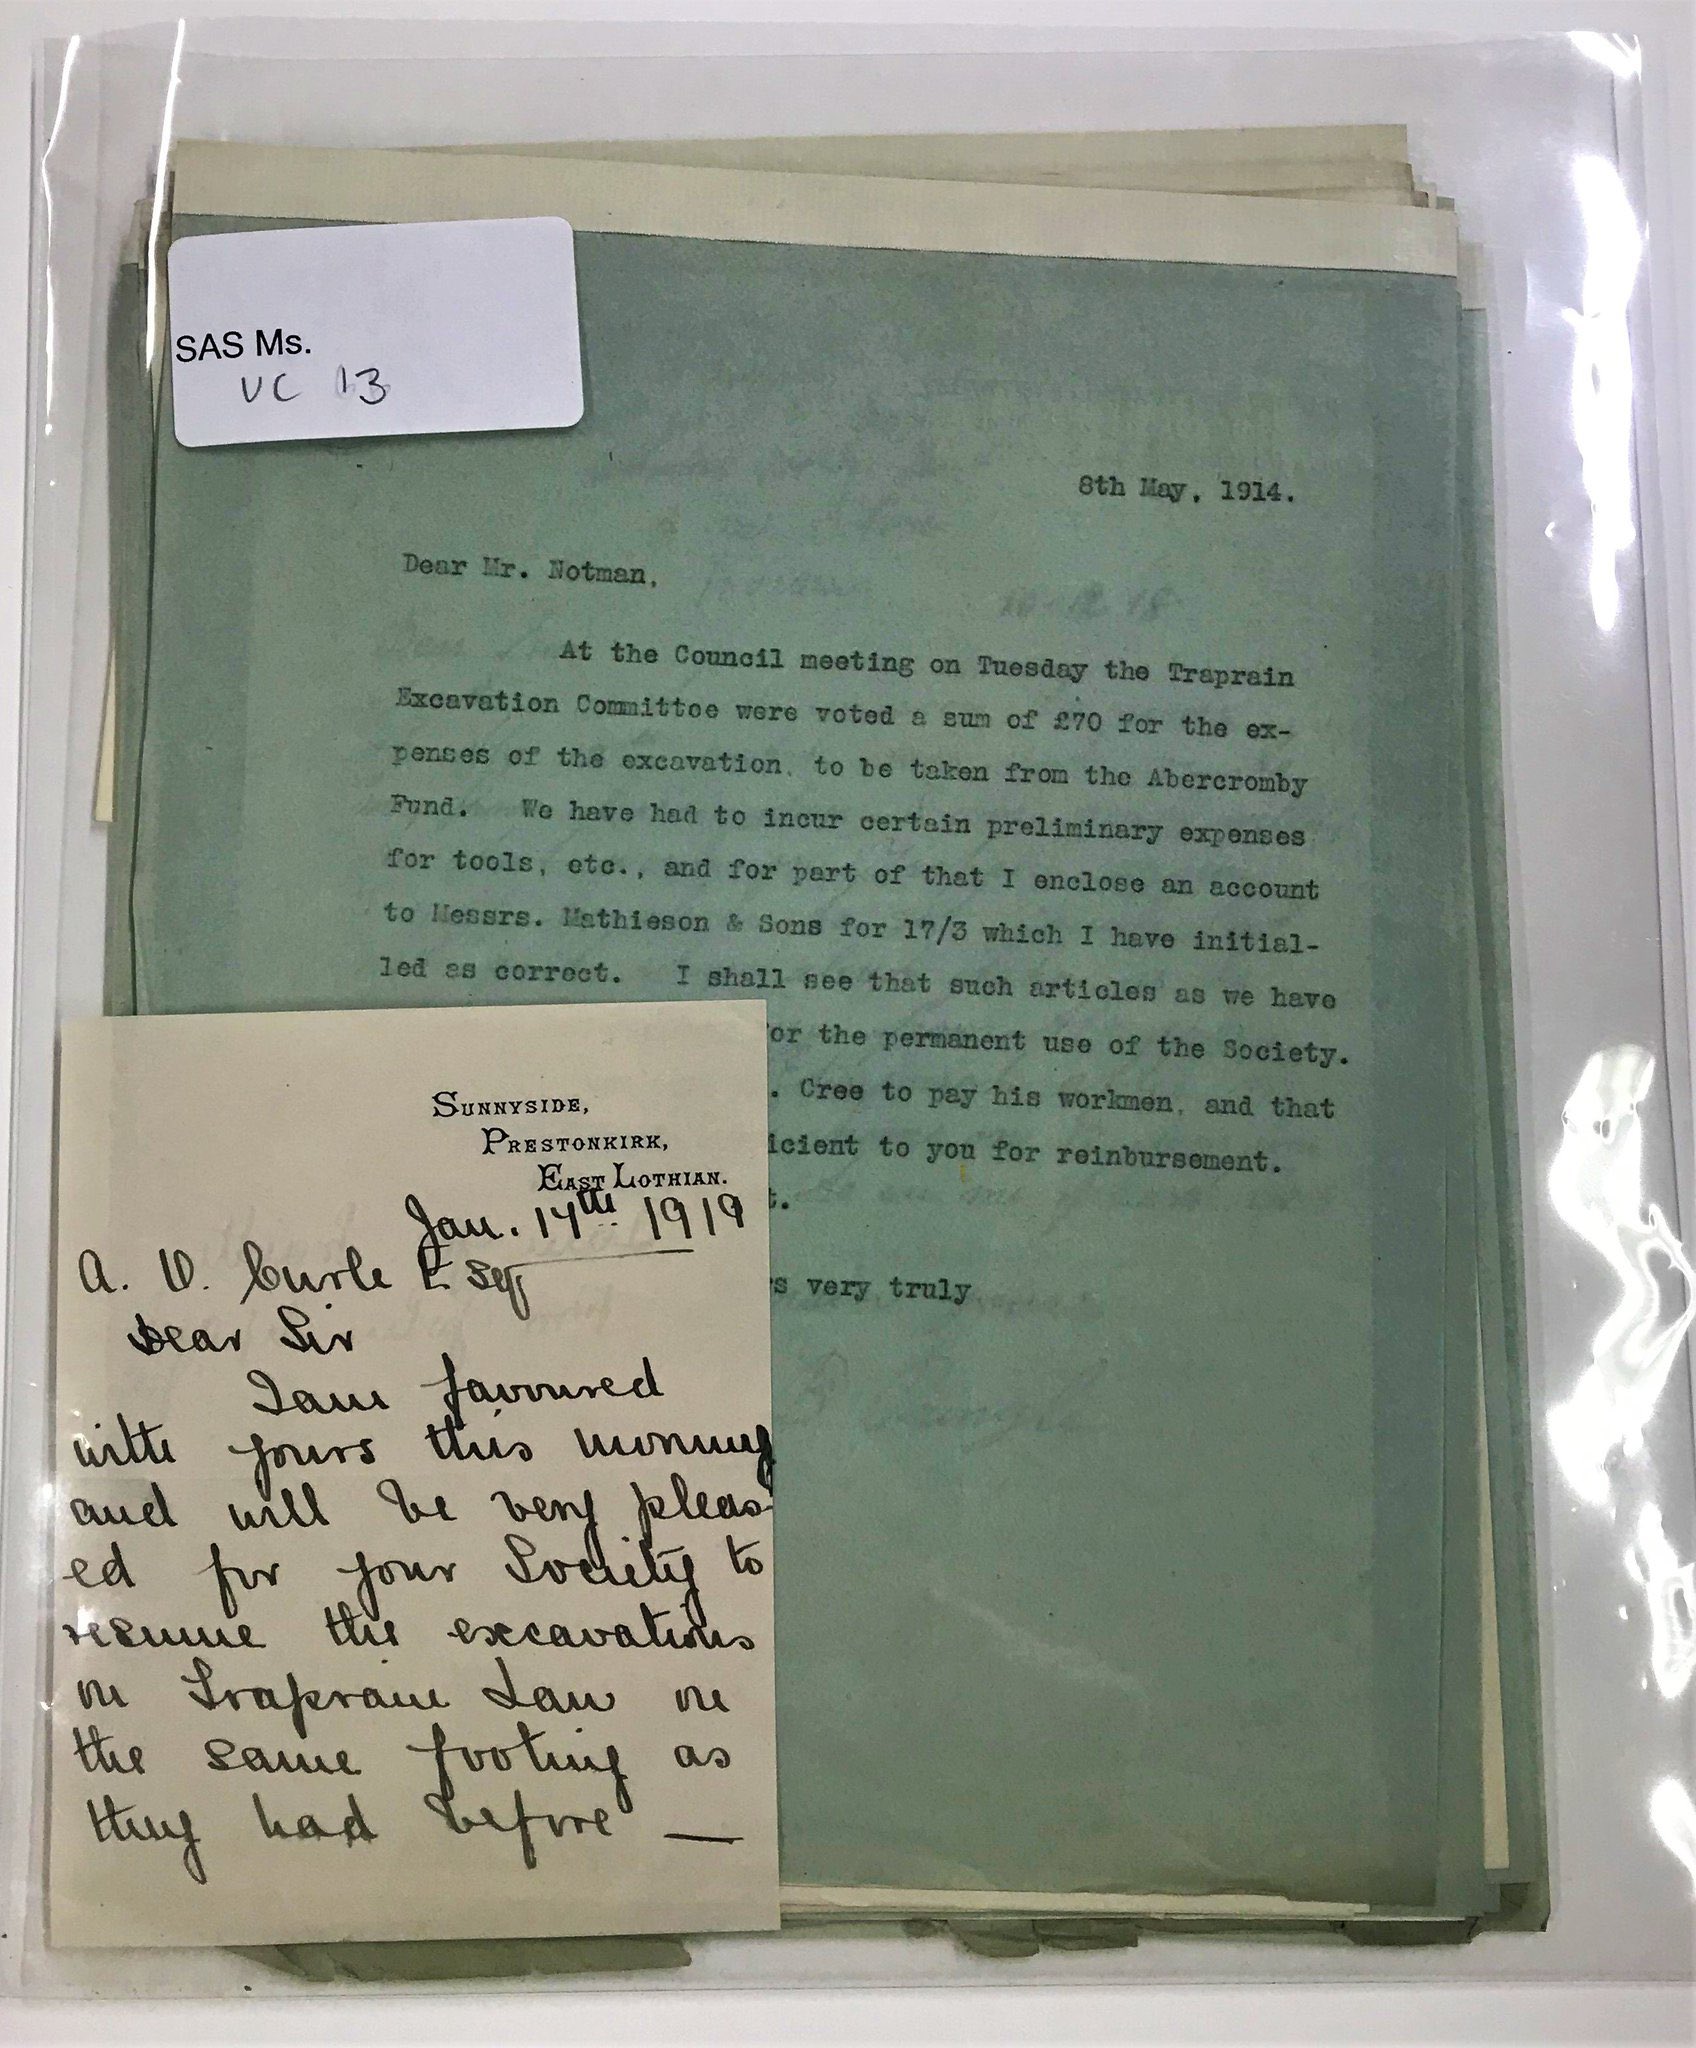 SAS Ms.
UC 13
8th May, 1914.
Dear Mr. Notman,
At the Council meeting on Tuesday the Traprain
Excavation Committee were voted a sum of £70 for the ex-
penses of the excavation, to be taken from the Abercromby
Fund. We have had to incur certain preliminary expenses
for tools, etc., and for part of that I enclose an account
to Messrs. Mathieson & Sons for 17/3 which I have initial-
led as correct. I shall see that such articles as we have
or the permanent use of the Society.
. Cree to pay his workmen, and that
icient to you for reinbursement.
t.
s very truly
Sunnyside,
Prestonkirk,
East Lothian.
Jan. 17th 1919
A. O. Curle Esq
Dear Sir
I am favoured
with yours this morning
and will be very pleas-
ed for your Society to
resume the excavations
on Traprain Law on
the same footing as
they had before —